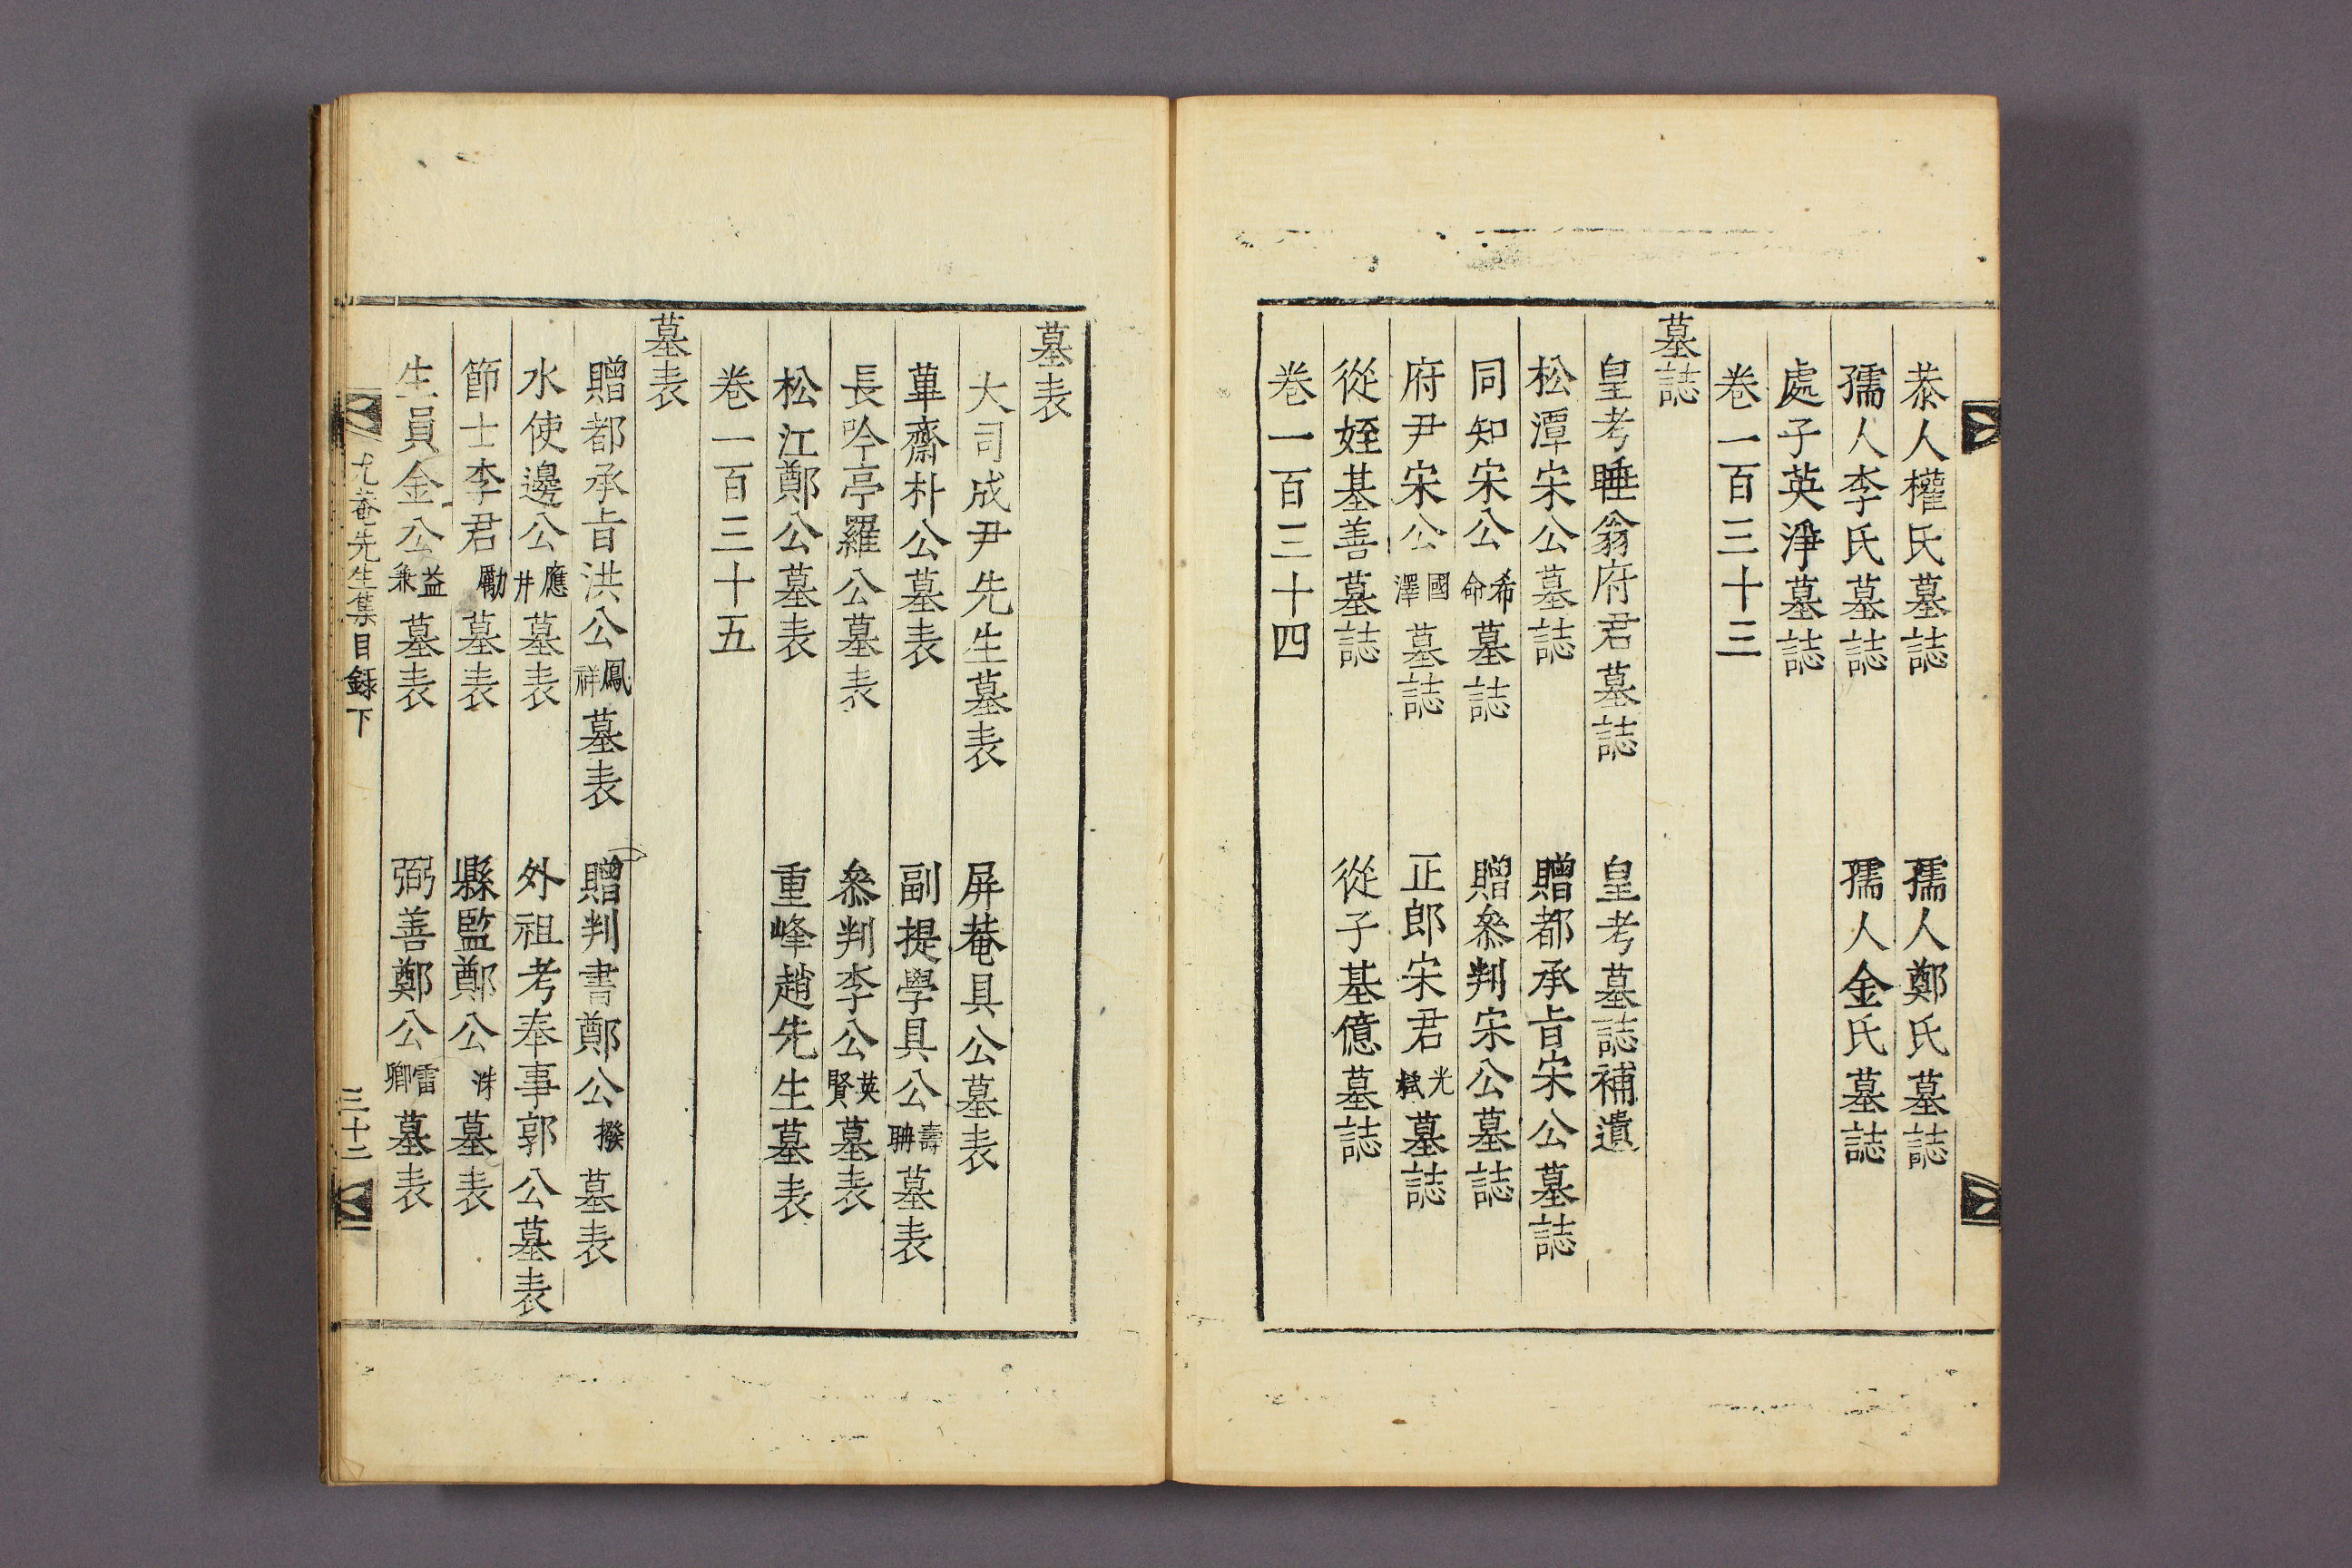 恭人權氏墓誌 孺人鄭氏墓誌
孺人李氏墓誌 孺人金氏墓誌
處子英淨墓誌
卷一百三十三
墓誌
皇考睡翁府君墓誌 皇考墓誌補遺
松潭宋公墓誌 贈都承旨宋公墓誌
同知宋公希命墓誌 贈叅判宋公墓誌
府尹宋公國澤墓誌 正郎宋君光栻墓誌
從姪基善墓誌 從子基億墓誌
卷一百三十四
墓表
大司成尹先生墓表 屏菴具公墓表
葷齋朴公墓表 副提學具公壽聃墓表
長吟亭羅公墓表 叅判李公英賢墓表
松江鄭公墓表 重峰趙先生墓表
卷一百三十五
墓表
贈都承旨洪公鳳祥墓表 贈判書鄭公撥墓表
水使邊公應井墓表 外祖考奉事郭公墓表
節士李君勵墓表 縣監鄭公洙墓表
生員金公益兼墓表 弼善鄭公雷卿墓表
尤菴先生集目錄下 三十二